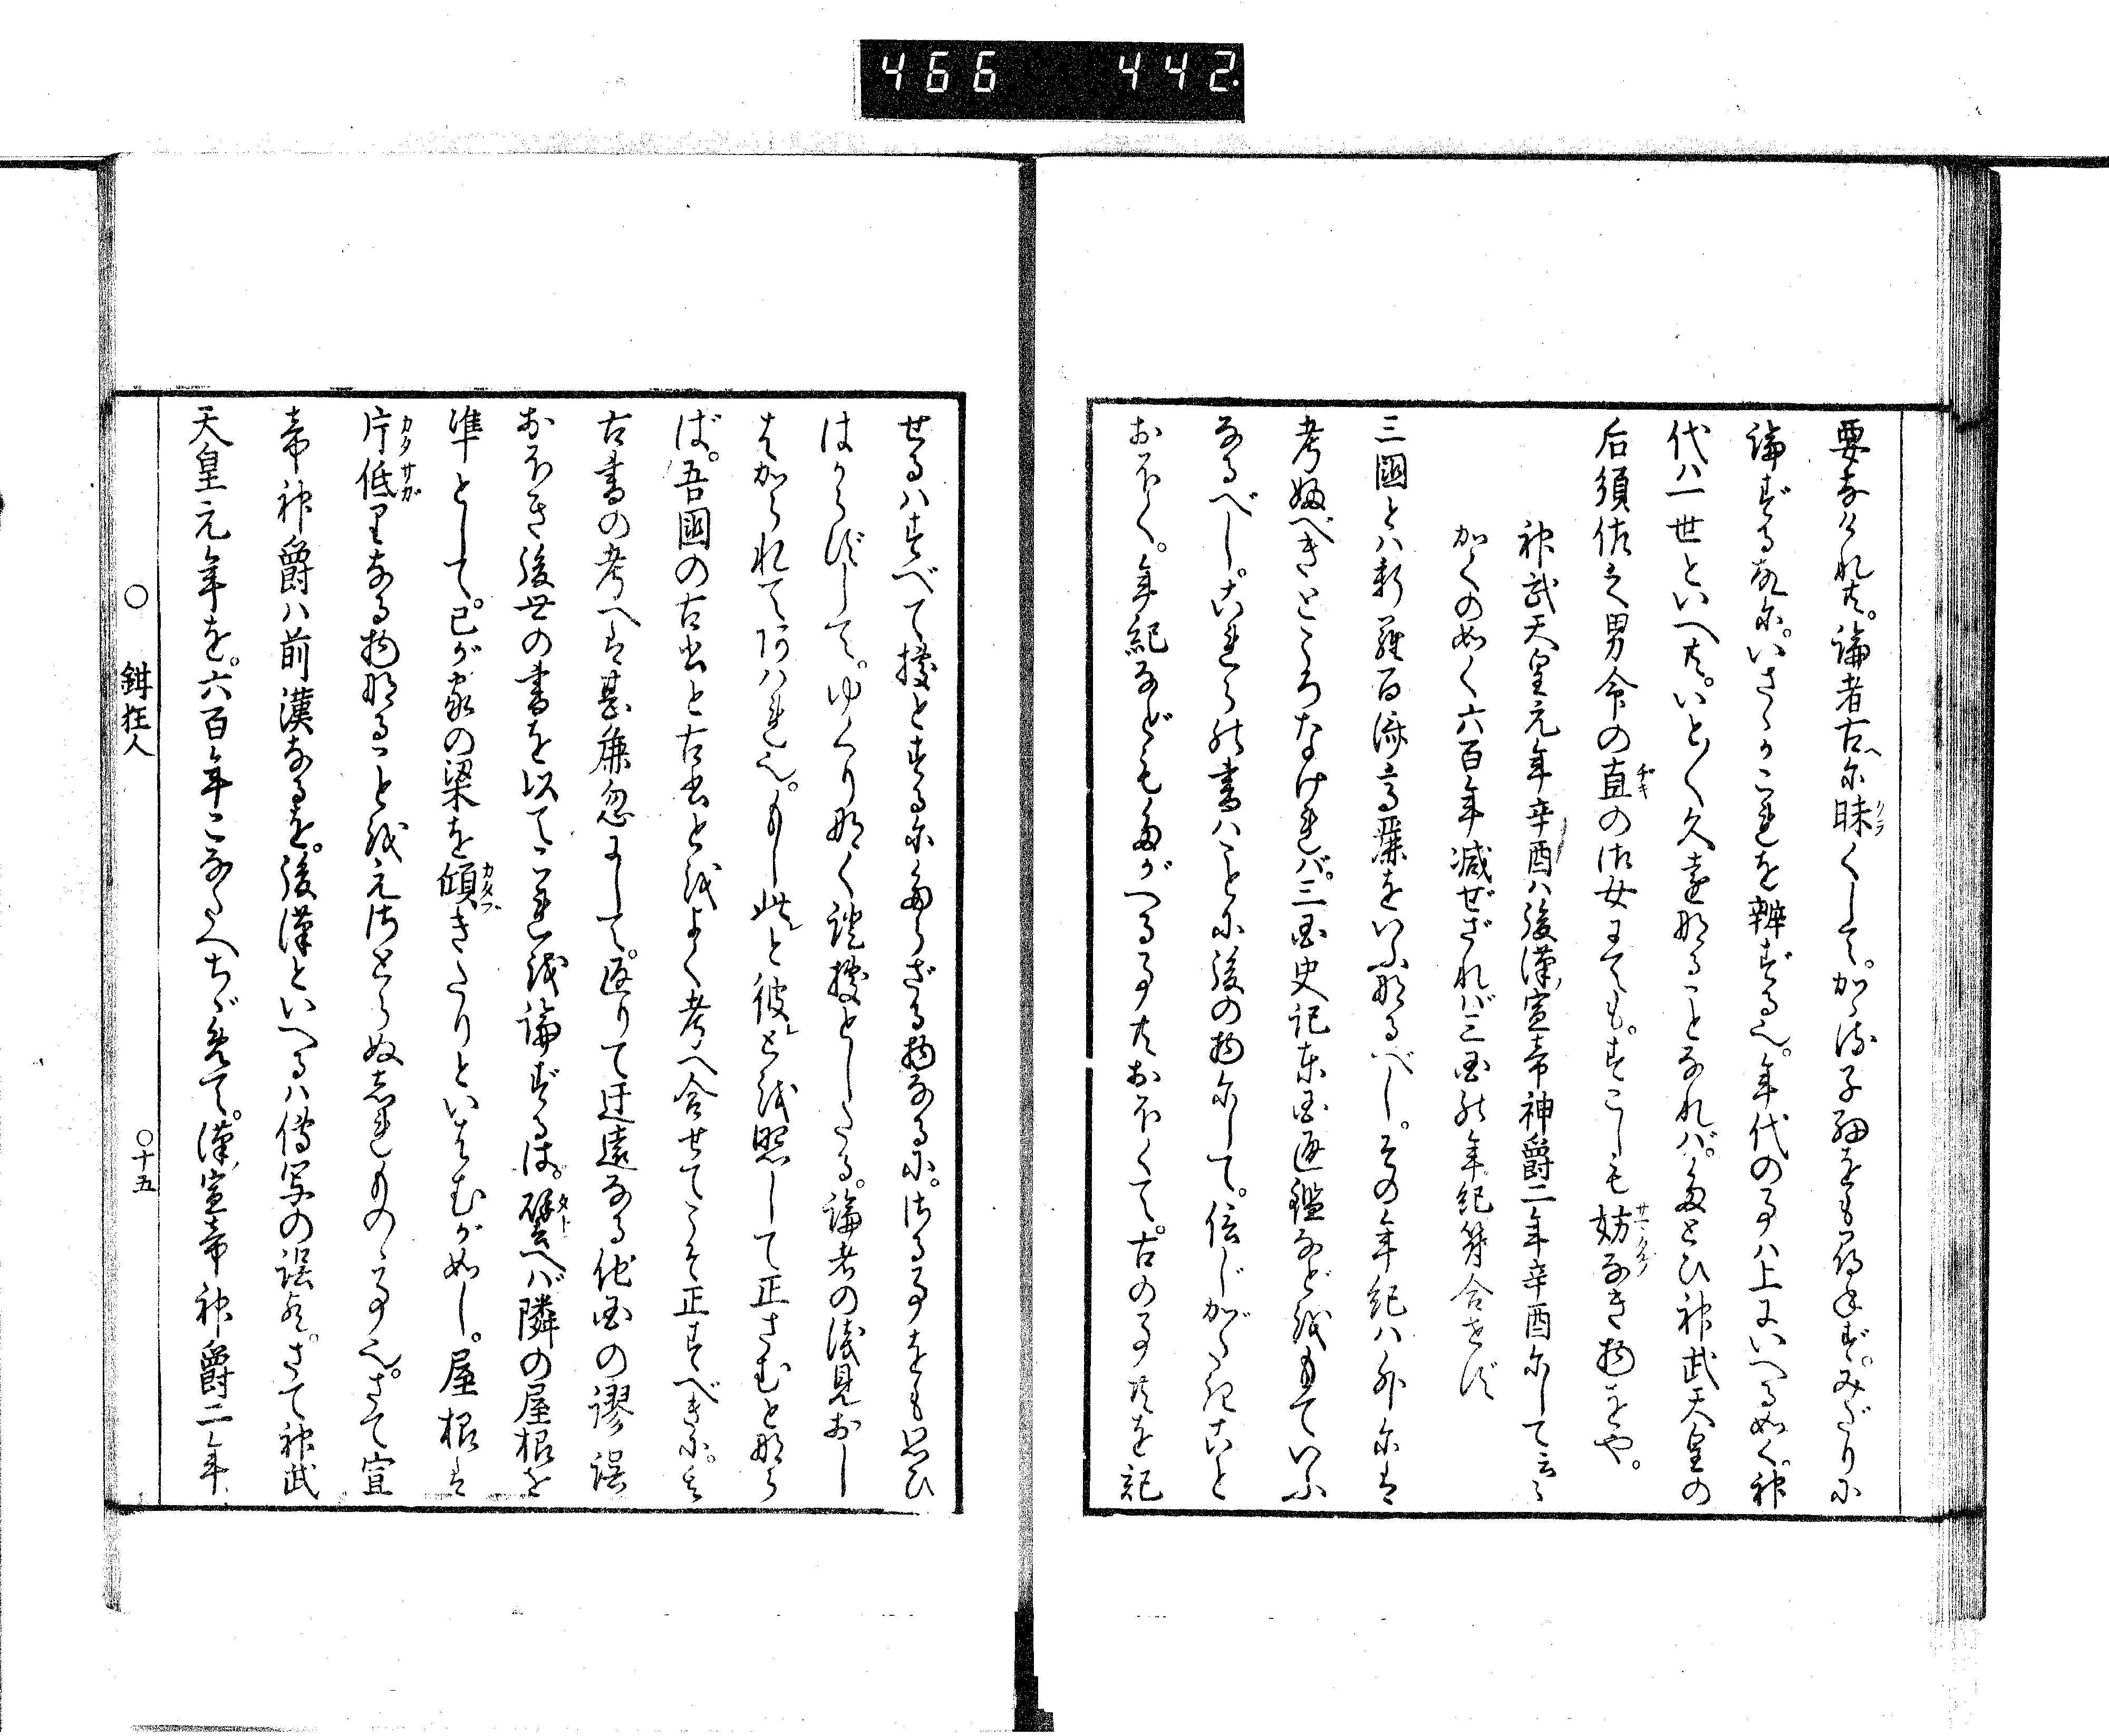 466 442
要なけれ共。論者古へに昧くして。かゝる子細をも得しらず。みだりに
論ずる故に。いさゝかこれを辨ずる也。年代の事ハ上にいへる如く。神
代ハ一世といへ共。いと〳〵久遠なることなれバ。たとひ神武天皇の
后須佐之男命の直の御女にても。すこしも妨なき物をや。
神武天皇元年辛酉ハ後漢宣帝神爵二年辛酉にして云々
かくの如く六百年減ぜざれバ三国の年紀符合せず
三國とハ新羅百済高麗をいふなるべし。その年紀ハ外には
考ふべきところなけれバ。三国史記東国通鑑などをもていふ
なるべし。これらの書ハことに後の物にして。信じがたきこと
おほく。年紀などもたがへる事共おほくて。古の事共を記
せるハすべて據とするにたらざる物なるに。さる事をも思ひ
はからずして。ゆくりなく證據としたる。論者の淺見おし
はかられてあハれ也。もし此と彼とを照して正さむとなら
ば。吾國の古書と古書とをよく考へ合せてこそ正すべきに。其
古書の考へは甚麁忽にして。返りて迂遠なる他国の謬誤
おほき後世の書を以てこれを論ずるは。譬へバ隣の屋根を
準として。己が家の梁を傾きたりといはむが如し。屋根は
片低里なる物なることをえさとらぬしれものゝ事也。さて宣
帝神爵ハ前漢なるを。後漢といへるハ傳写の誤歟。さて神武
天皇元年を。六百年こなたへちゞめて。漢宣帝神爵二年
○ 鉗狂人 ○十五